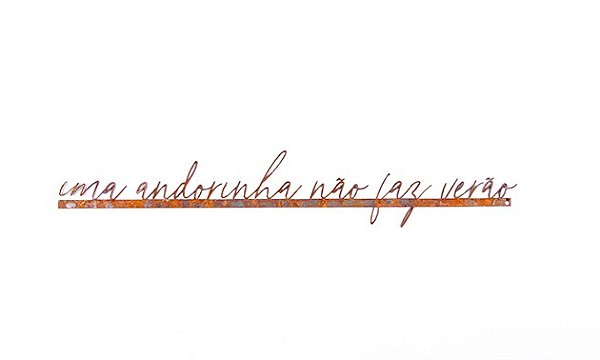 uma andorinha não faz verão